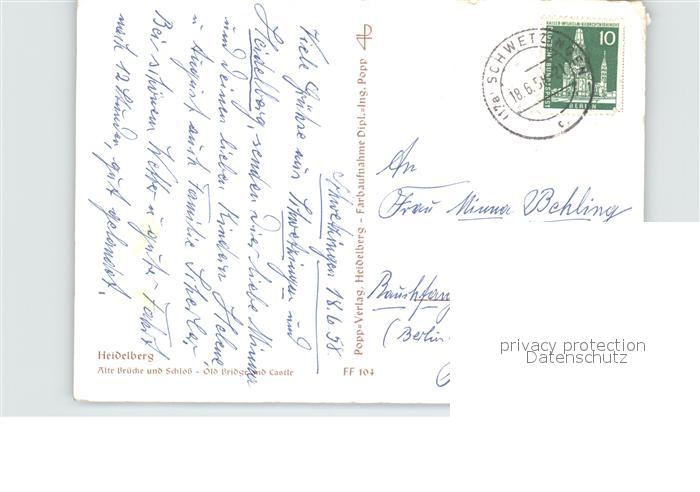 Schwetzingen 18.6.58
Viele Grüsse aus Schwetzingen und
Heidelberg, senden Dir liebe Minna
und deinen lieben Kindern Helene
u August auch Familie
Bei schönem Wetter u guter Fahrt
nach 12 Stunden, gut gelandet.
Heidelberg
Alte Brücke und Schloß - Old Bridge and Castle
FF 104
Popp=Verlag, Heidelberg - Farbaufnahme Dipl.=Ing. Popp
(17a) SCHWETZINGEN
18.6.58
KAISER-WILHELM-GEDÄCHTNISKIRCHE
10
DEUTSCHE BUNDESPOST
BERLIN
An
Frau Minna Behling
(Berlin
privacy protection
Datenschutz